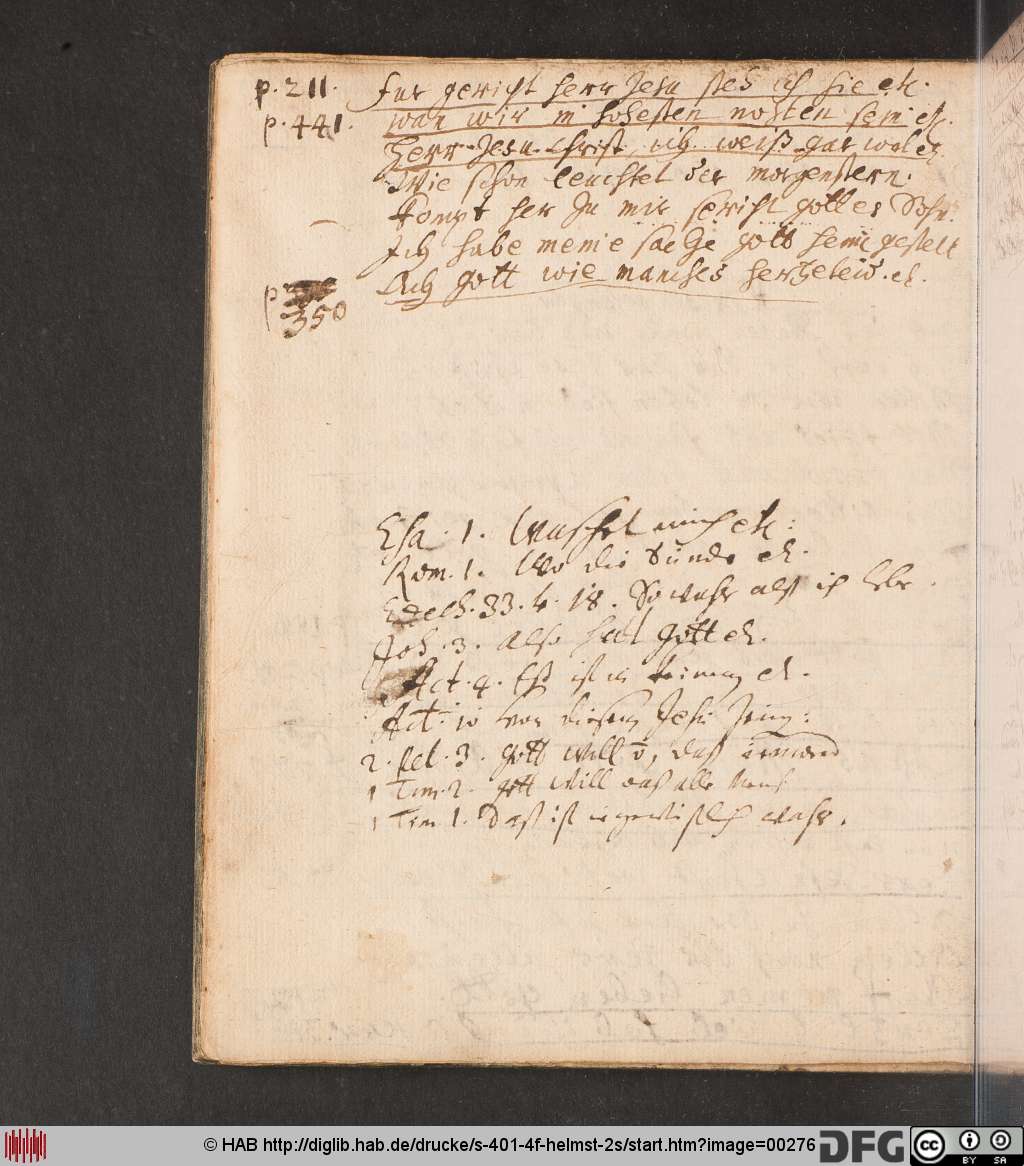 p. 211. Fur gericht herr Jesu steh ich hie etc.
p. 441. wan wir in hohesten nohten sein etc.
Herr Jesu Christ, ich weiß gar wol etc.
Wie schon leuchtet der morgenstern.
Kompt her zu mir spricht gottes Sohn.
Ich habe meine sache gott heim gestelt
Ach gott wie manches hertzeleid. etc.
p.
350
Esa. 1. Waschet euch etc:
Rom. 1. Wo die Sünde etc.
Ezech. 33. v. 18. So wahr alß ich lebe.
Joh. 3. Also hat gott etc.
Act. 4. Eß ist in keinem etc.
Act. 10 von diesem Jesu zeug:
2. Pet. 3. gott will n, daß iemand
1 Tim. 2. gott will daß alle Mens
1 Tim 1. Daß ist ie gewißlich wahr.
© HAB http://diglib.hab.de/drucke/s-401-4f-helmst-2s/start.htm?image=00276 DFG cc BY SA